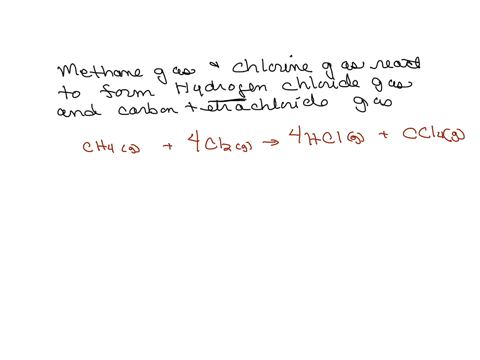 Methane gas & chlorine gas react
to form Hydrogen chloride gas
and carbon tetrachloride gas
CH4 (g) + 4Cl2 (g) → 4HCl (g) + CCl4 (g)